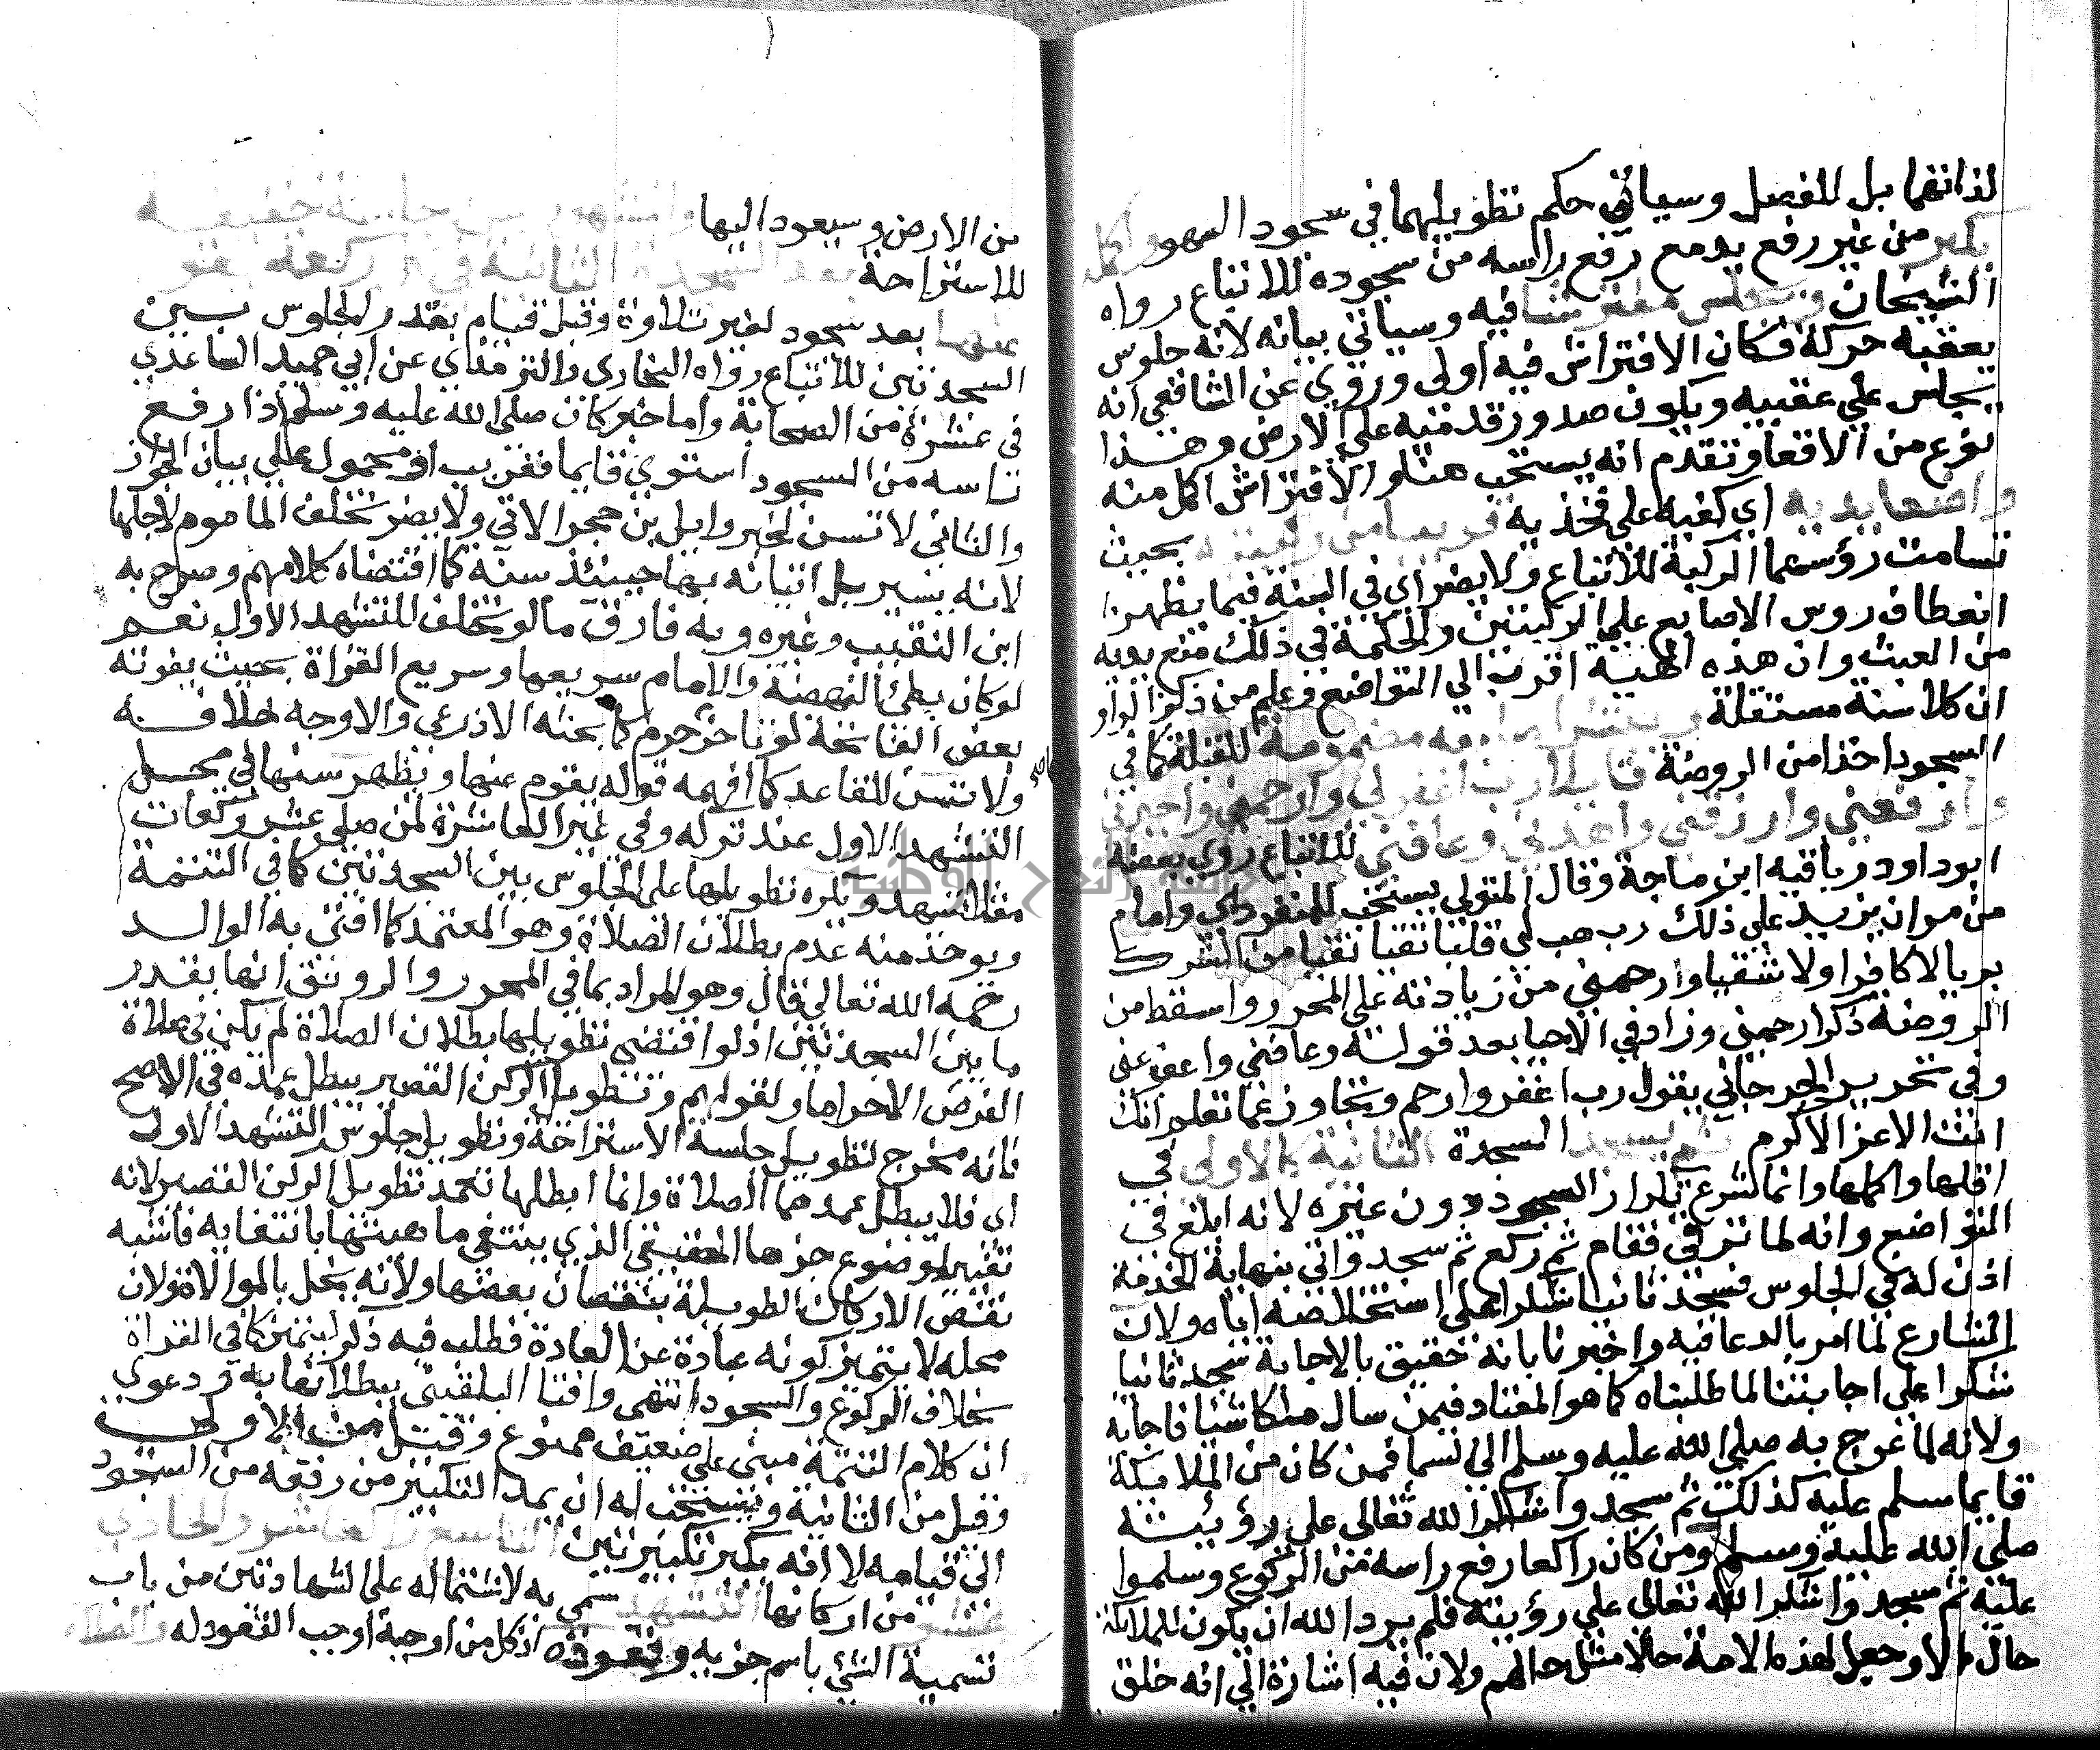 لذاتهما بل للفصل وسياتي حكم تطويلهما في سجود السهو واكمله
يكبر من غير رفع يد مع رفع راسه من سجوده للاتباع رواه
الشيخان ويجلس مفترشا فيه وسياتي بيانه لانه جلوس
يعقبه حركة فكان الافتراش فيه اولى وروي عن الشافعي انه
يجلس علي عقبيه ويكون صدور قدميه علي الارض وهذا
نوع من الاقعا وتقدم انه يستحب هنا والافتراش اكمل منه
واضعا يديه اي كفيه علي فخذيه قريبا من ركبتيه بحيث
تسامت رؤسهما الركبة للاتباع ولا يضر اي في السنة فيما يظهر
انعطاف روس الاصابع علي الركبتين والحكمة في ذلك منع يديه
من العبث وان هذه الهيية اقرب الي التواضع وعلم من ذكر الواو
ان كلا سنة مستقلة وينشر اصابعه مضمومة للقبلة كما في
السجود اخذا من الروضة قايلا رب اغفر لي وارحمني واجبرني
وارفعني وارزقني واهدني وعافني للاتباع روي بعضه
ابو داود وباقيه ابن ماجة وقال المتولي يستحب للمنفرد اي وامام
من مر ان يزيد علي ذلك رب هب لي قلبا تقيا نقيا من الشرك
بريا لا كافرا ولا شقيا وارحمني من زيادته علي المحرر واسقط من
الروضة ذكر ارحمني وزاد في الاحيا بعد قوله وعافني واعف عني
وفي تحرير الجرجاني يقول رب اغفر وارحم وتجاوز عما تعلم انك
انت الاعز الاكرم ثم يسجد السجدة الثانية كالاولي في
اقلها واكملها وانما شرع تكرار السجود دون غيره لانه ابلغ في
التواضع وانه لما ترقي فقام ثم ركع ثم سجد واتي بنهاية الخدمة
اذن له في الجلوس فسجد ثانيا شكرا علي استخلاصه اياه ولان
الشارع لما امر بالدعا فيه واخبرنا بانه حقيق بالاجابة سجد ثانيا
شكرا علي اجابتنا لما طلبناه كما هو المعتاد فيمن سال ملكا شيا فاجابه
ولانه لما عرج به صلي الله عليه وسلم الي السما فمن كان من الملايكة
قايما سلم عليه كذلك ثم سجد واشكرا لله تعالى علي رؤيته
صلي الله عليه وسلم ومن كان راكعا رفع راسه من الركوع وسلموا
عليه ثم سجدوا شكرا لله تعالى علي رؤيته فلم يرد الله ان يكون للملائكة
حال الا وجعل لهذه الامة حالا مثل حالهم ولان فيه اشارة الي انه خلق
من الارض وسيعود اليها
للاستراحة
بعد سجود لغير تلاوة وقبل قيام بقدر الجلوس بين
السجدتين للاتباع رواه البخاري والترمذي عن ابي حميد الساعدي
في عشرة من الصحابة واما خبر كان صلي الله عليه وسلم اذا رفع
راسه من السجود استوي قايما فغريب او محمول علي بيان الجواز
والثاني لا تسن لخبر وايل بن حجر الاتي ولا يضر تخلف الماموم لاجلها
لانه يسير بل اتيانه بها حينئذ سنة كما اقتضاه كلامهم وصرح به
ابن النقيب وغيره وبه فارق ما لو تخلف للتشهد الاول نعم
لو كان بطئ النهضة والامام سريعها وسريع القراة بحيث يفوته
بعض الفاتحة لو تاخر حرم كما بحثه الاذرعي والاوجه خلافه
ولا تسن للقاعد كما افهمه قوله يقوم عنها ويظهر سنها في محل
التشهد الاول عند تركه وفي غير العاشرة لمن صلي عشر ركعات
مثلا بتشهد ويكره تطويلها علي الجلوس بين السجدتين كما في التتمة
ويوخذ منه عدم بطلان الصلاة وهو المعتمد كما افتي به الوالد
رحمه الله تعالي قال وهو المراد بما في المحرر والرونق انها بقدر
ما بين السجدتين اذ لو اقتضي تطويلها بطلان الصلاة لم يكن في صلاة
الفرض الاحرام ولقولهم وتطويل الركن القصير يبطل عمده في الاصح
فانه مخرج لتطويل جلسة الاستراحة وتطويل جلوس التشهد الاول
اي فلا يبطل عمدهما الصلاة وانما ابطلها تعمد تطويل الركن القصير لانه
تغيير لموضوع جزها الحقيقي الذي ينتفي ماهيتها بانتفايه فاشبه
نقص الاركان الطويلة بنقصان بعضها ولانه يخل بالموالاة ولان
محله لا يتميز كونه عبادة عن العادة فطلب فيه ذكر ليتميز كما في القراة
بخلاف الركوع والسجود انتهى وافتا البلقيني ببطلانها به ودعوي
ان كلام التتمة مبني علي ضعيف ممنوع وقيل من الاولي
وقيل من الثانية ويستحب له ان يمد التكبير من رفعه من السجود
الي قيامه لا انه يكبر تكبيرتين التاسع العاشر والحادي
عشر من اركانها التشهد سمي به لاشتماله علي الشهادتين من باب
تسمية الشئي باسم جزيه وقعوده اذ كل من اوجبه اوجب القعود له والصلاة